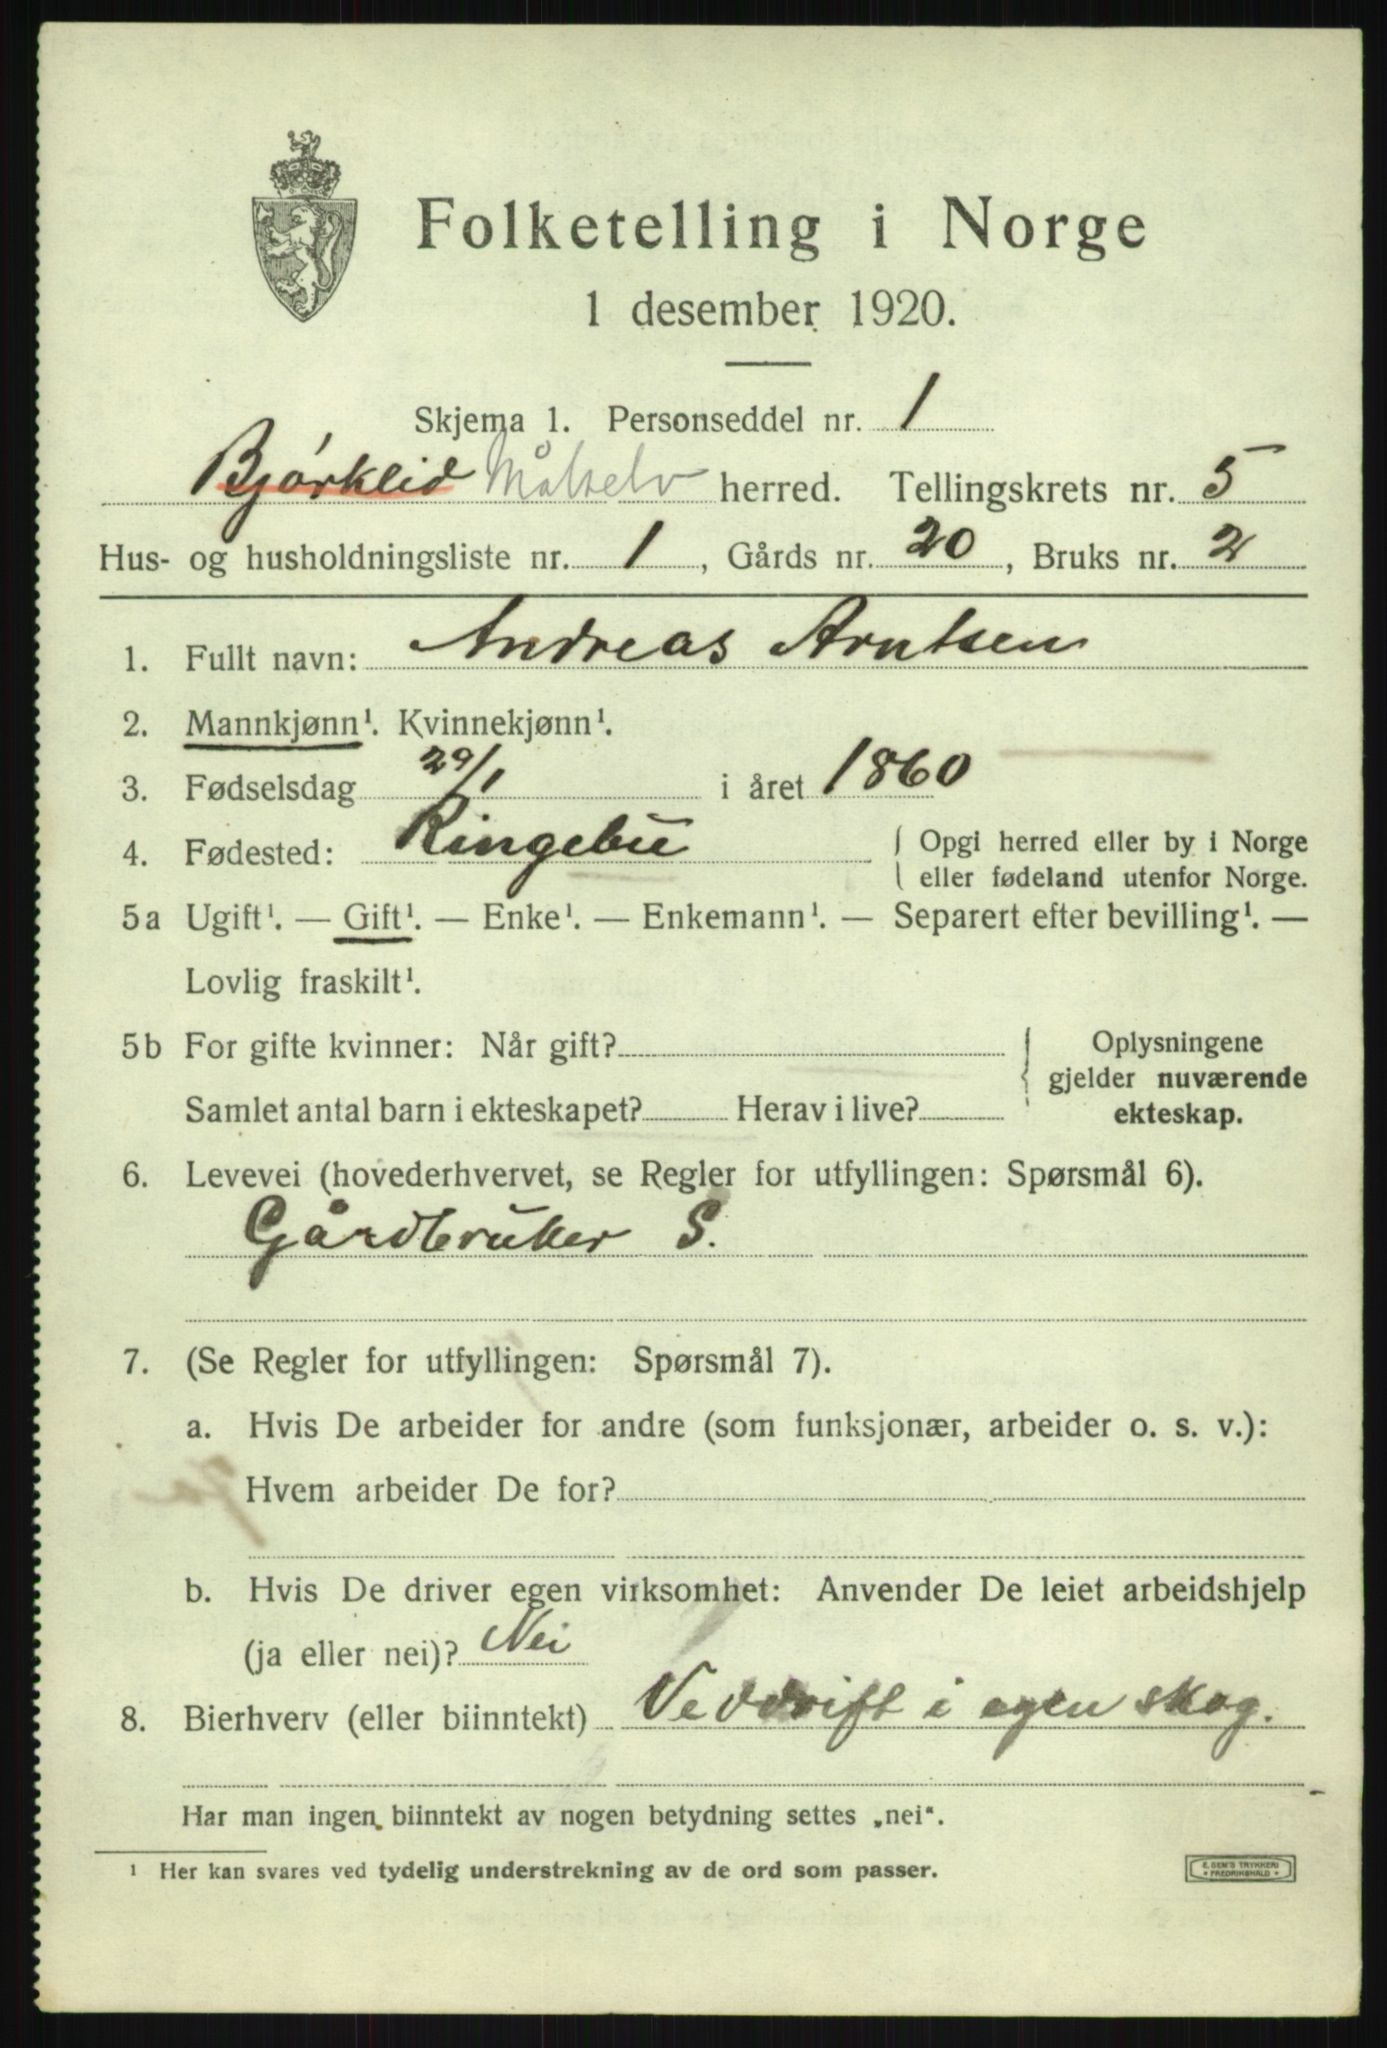 Folketelling i Norge
1 desember 1920.
Skjema 1. Personseddel nr. 1
Bjørklid Målselv herred. Tellingskrets nr. 5
Hus- og husholdningsliste nr. 1, Gårds nr. 20, Bruks nr. 2
1. Fullt navn: Andreas Arntsen
2. Mannkjønn¹. Kvinnekjønn¹.
3. Fødselsdag 29/1 i året 1860
4. Fødested: Ringebu { Opgi herred eller by i Norge
eller fødeland utenfor Norge.
5a Ugift¹. — Gift¹. — Enke¹. — Enkemann¹. — Separert efter bevilling¹. —
Lovlig fraskilt¹.
5b For gifte kvinner: Når gift? } Oplysningene
gjelder nuværende
Samlet antal barn i ekteskapet? Herav i live? ekteskap.
6. Levevei (hovederhvervet, se Regler for utfyllingen: Spørsmål 6).
Gårdbruker S.
7. (Se Regler for utfyllingen: Spørsmål 7).
a. Hvis De arbeider for andre (som funksjonær, arbeider o. s. v.):
Hvem arbeider De for?
b. Hvis De driver egen virksomhet: Anvender De leiet arbeidshjelp
(ja eller nei)? Nei
8. Bierhverv (eller biinntekt) Veddrift i egen skog.
Har man ingen biinntekt av nogen betydning settes „nei“.
¹ Her kan svares ved tydelig understrekning av de ord som passer.
E. SEM'S TRYKKERI
• FREDRIKSHALD •